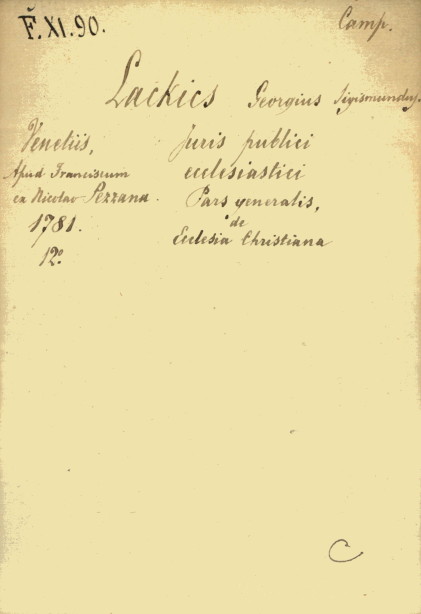 F̌. XI. 90.
Camp.
Lackics Georgius Sigismundus.
Venetiis,
Apud Franciscum
ex Nicolao Pezzana.
1781.
12º
Juris publici
ecclesiastici
Pars generalis,
de
Ecclesia Christiana
C